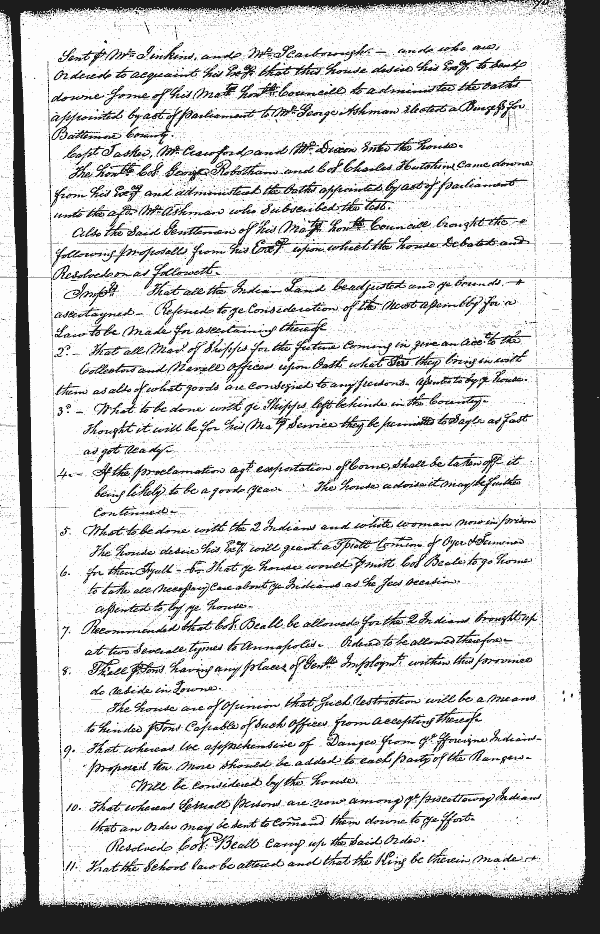 Sent p Mr. Jenkins, and Mr. Scarborough. – and who are,
Ordered to acquaint his Exy. that this house desire his Exy. to send
downe some of his Maty. honble Councill to administer the Oaths
appointed by act of Parliament to Mr. George Ashman Elected a Burgess for
Baltimore County.
Capt. Tasker, Mr. Crawford and Mr. Dixon Enter the house.
The honble Col. George Robotham and Col. Charles Hutchins came downe
from his Exy. and administered the Oaths appointed by act of Parliament
unto the afsd. Mr. Ashman who Subscribed the test.
Also the Said Gentlemen of his Matys. honble Councill brought the
following proposalls from his Exy. upon which the house Debated and
Resolved on as followeth.
Imps. That all the Indian Land be adjusted and ye bounds
ascertayned – Referred to ye Consideration of the Next Assembly for a
Law to be made for ascertaining thereof
2o. – That all Mars. of Shipps for the future coming in give an acct. to the
Collectors and Navall Officers upon Oath what they bring in with
them as also of what goods are consigned to any persons assented to by ye house.
3o. – What to be done with ye Shipps left behinde in the Country.
thought it will be for his Matys. Service they be permitted to Sayle as fast
as got ready.
4. – If the proclamation agt. exportation of Corne, shall be taken off it
being likely to be a good year. The house advise it may be further
Continued –
5. What to be done with the 2 Indians and white woman now in prison
The house desire his Exy. will grant a Spetll Comcon of Oyer & Terminer
6. for their Tryall – To. That ye house would pmitt Col. Beale to go home
to take all necessary care about ye Indians as he sees occasion.
Assented to by ye house.
7. Recommended that Col. Beall be allowed for the 2 Indians brought up
at two severall tymes to Annapolis. Ordered to be allowed therefore
8. That all psons having any places of Genll. Imploymt. within this province
do reside in Towne.
The house are of Opinion that such restriction will be a means
to hinder psons Capable of Such Offices from accepting thereof
9. That whereas we apprehensive of Danger from ye. fforeigne Indians
proposed ten More should be added to each party of the Rangers.
Will be considered by the house.
10. That whereas Severall Persons are now among ye. piscattoway Indians
that an Order may be sent to Comand them downe to ye ffort.
Resolved Col. Beall carry up the said Order.
11. That the School law be altered and that the King be therein made